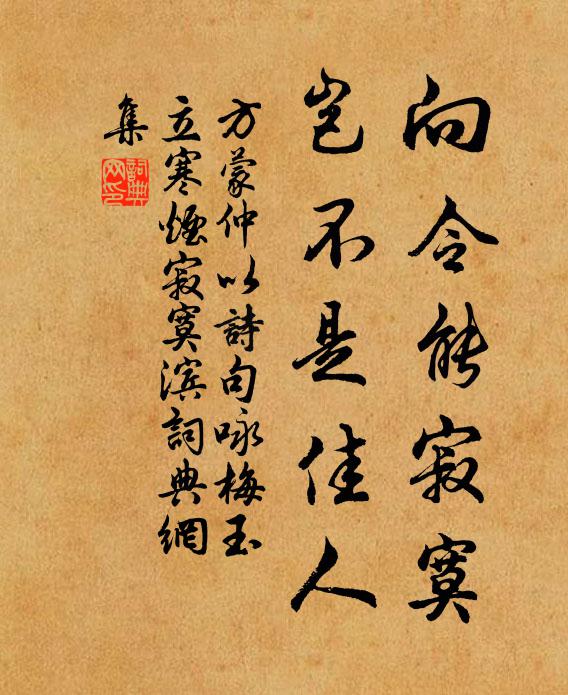 向令能寂寞
豈不是佳人
方蒙仲以詩句咏梅玉
立寒煙寂寞滨詞典網
集
詞典
网印